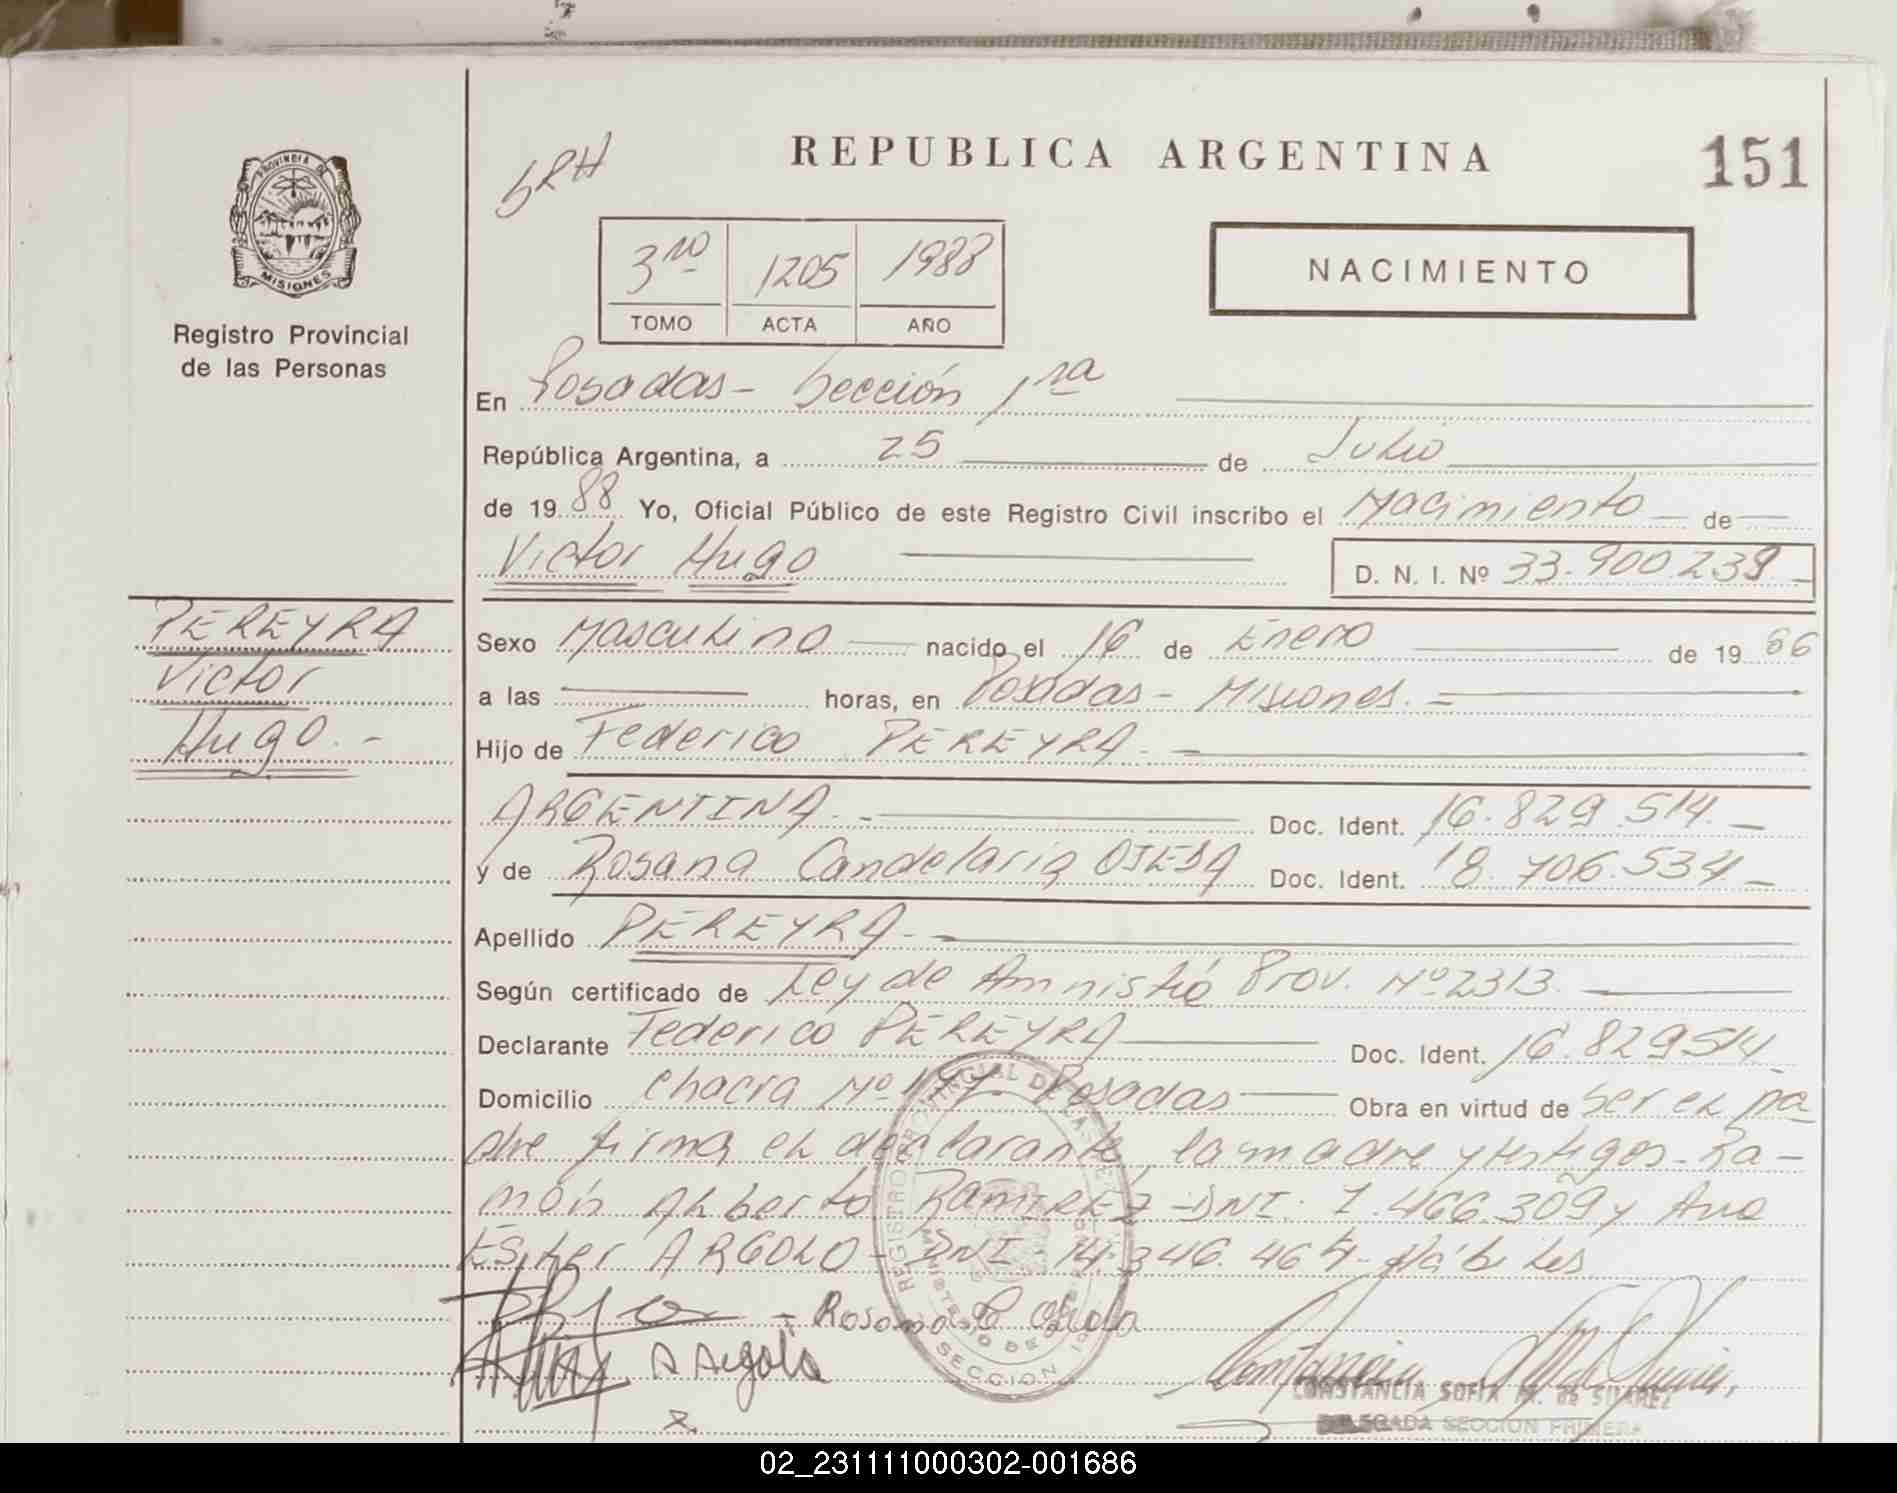 PROVINCIA DE
MISIONES
Registro Provincial
de las Personas
REPUBLICA ARGENTINA
151
3ro 1205 1988
TOMO ACTA AÑO
NACIMIENTO
En Posadas - Sección 1ra
República Argentina, a 25 de Julio
de 1988 Yo, Oficial Público de este Registro Civil inscribo el Nacimiento - de -
Victor Hugo D. N. I. Nº 33.900.239 -
PEREYRA
Victor
Hugo. -
Sexo Masculino nacido el 16 de Enero de 1986
a las horas, en Posadas - Misiones. =
Hijo de Federico PEREYRA. -
ARGENTINA. - Doc. Ident. 16.829.514. -
y de Rosana Candelaria OJEDA Doc. Ident. 18.706.534 -
Apellido PEREYRA. -
Según certificado de Ley de Amnistía Prov. Nº 2313.
Declarante Federico PEREYRA Doc. Ident. 16.829514
Domicilio Chacra Nº 177. Posadas Obra en virtud de ser el pa-
dre firma el declarante, la madre y testigos - Ra-
món Alberto RAMIREZ - DNI. 7.466.309 y Ana
Ester ARGOLO - DNI. 14.346.464 - Hábiles
- Rosana C Ojeda
A Argolo
REGISTRO PROVINCIAL DE LAS PERSONAS
MINISTERIO DE GOBIERNO
SECCION 1
CONSTANCIA SOFIA M. de SUAREZ
DELEGADA SECCION PRIMERA
02_231111000302-001686